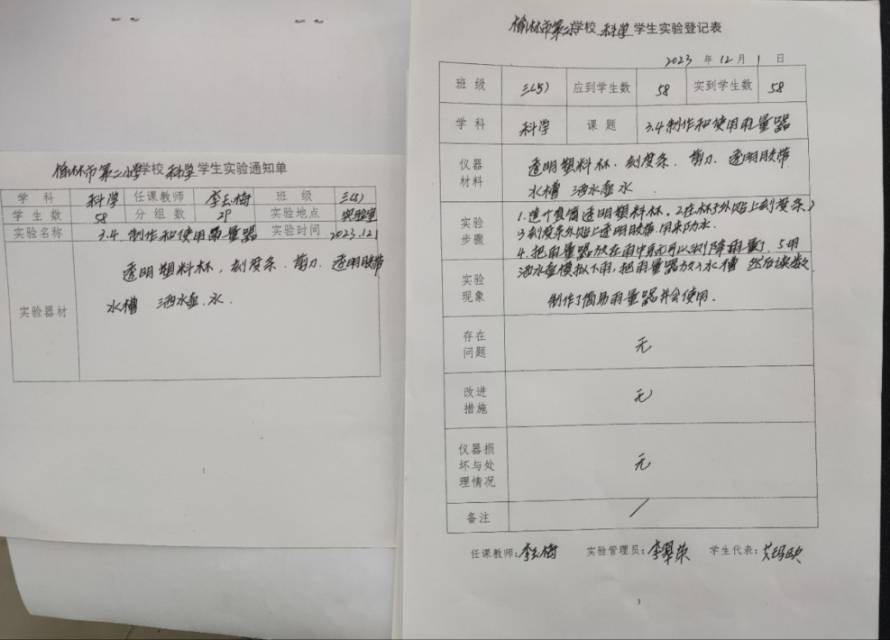 榆林市第二小学校 科学 学生实验通知单
学科 科学 任课教师 李玉梅 班级 三(5)
学生数 58 分组数 29 实验地点 实验室
实验名称 3.4 制作和使用雨量器 实验时间 2023.12.1
实验器材
透明塑料杯、刻度条、剪刀、透明胶带
水槽 洒水壶、水
榆林市第二小学校 科学 学生实验登记表
2023 年 12 月 1 日
班级 三(5) 应到学生数 58 实到学生数 58
学科 科学 课题 3.4 制作和使用雨量器
仪器材料
透明塑料杯、刻度条、剪刀、透明胶带
水槽 洒水壶 水
实验步骤
1.选个直筒透明塑料杯, 2.在杯子外贴上刻度条
3.刻度条外贴上透明胶带,用来防水.
4.把雨量器放在雨中就可以测降雨量了. 5.用
洒水壶模拟下雨,把雨量器放入水槽 然后读数
实验现象
制作了简易雨量器并会使用.
存在问题 无
改进措施 无
仪器损坏与处理情况 无
备注 /
任课教师:李玉梅 实验管理员:李翠荣 学生代表: